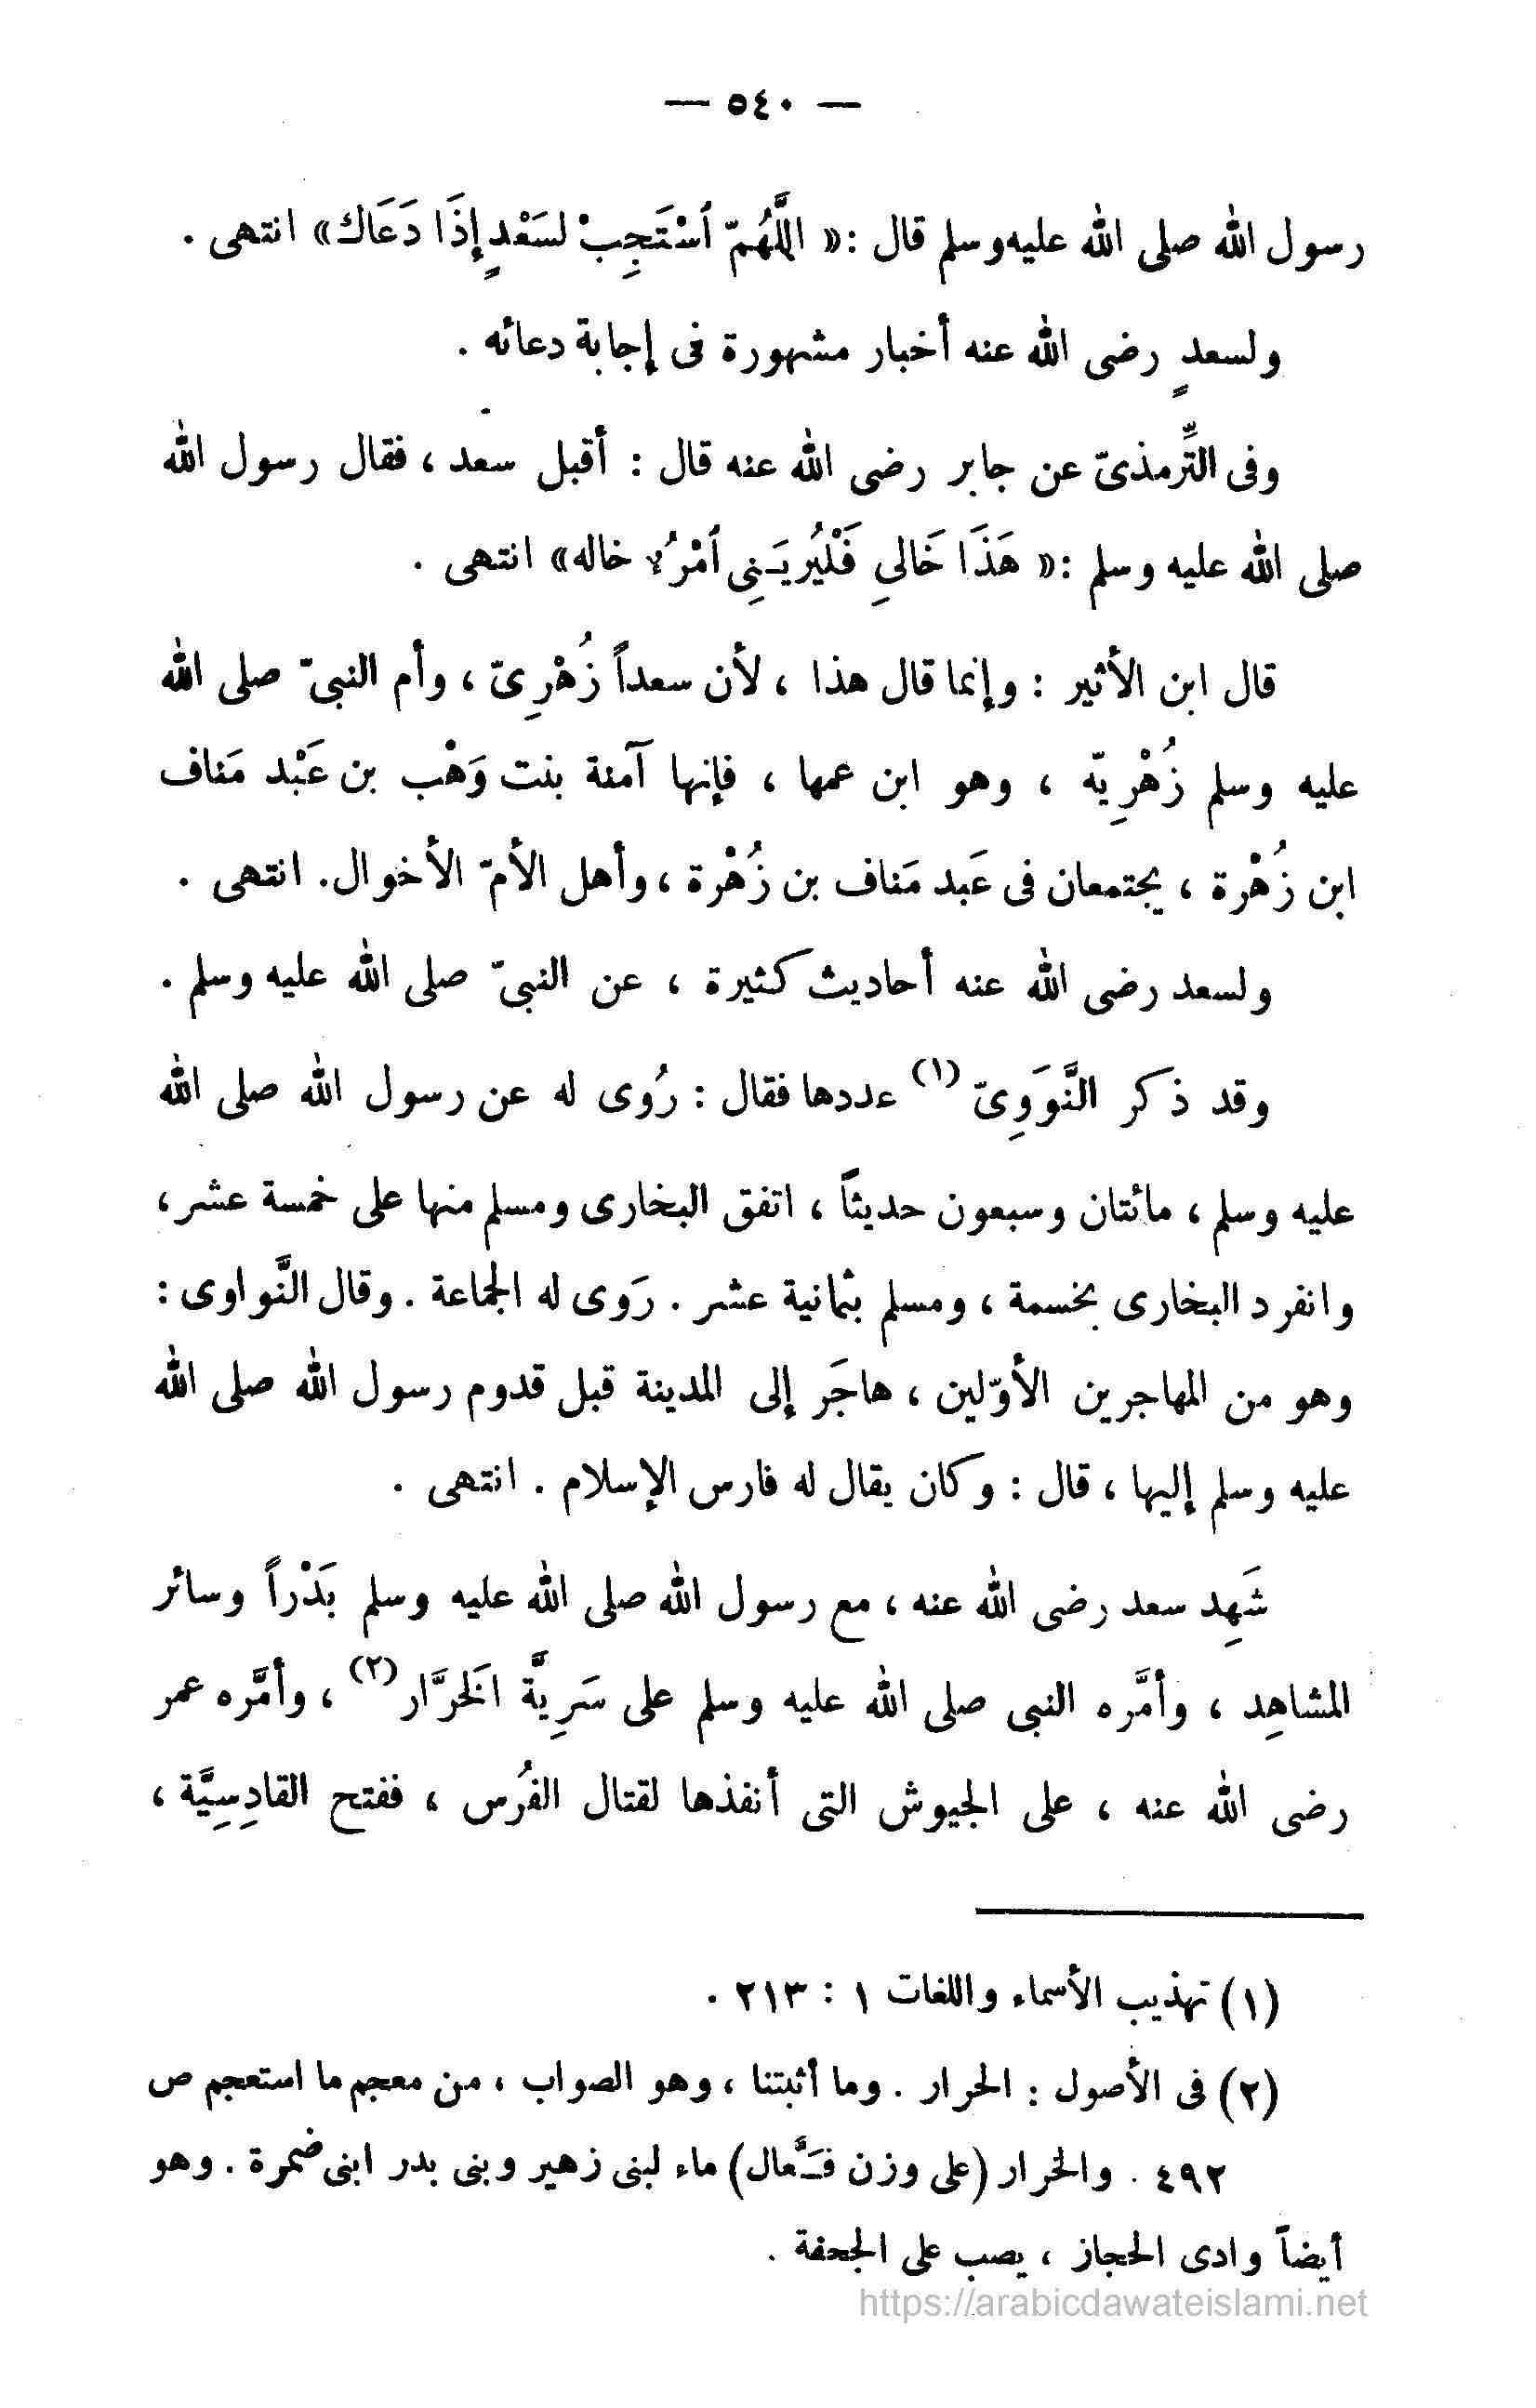 — ٥٤٠ —
رسول الله صلى الله عليه وسلم قال :« اللَّهُمّ ٱسْتَجِبْ لسَعْدٍ إذَا دَعَاك» انتهى .
ولسعدٍ رضى الله عنه أخبار مشهورة فى إجابة دعائه .
وفى التِّرمذىّ عن جابر رضى الله عنه قال : أقبل سعد ، فقال رسول الله
صلى الله عليه وسلم :« هَذَا خَالىِ فَلْيُريَـنِى ٱمْرُؤ خاله» انتهى .
قال ابن الأثير : وإنما قال هذا ، لأن سعداً زُهْرِىّ ، وأم النبىّ صلى الله
عليه وسلم زُهْرِيّه ، وهو ابن عمها ، فإنها آمنة بنت وَهْب بن عَبْد مَناف
ابن زُهْرة ، يجتمعان فى عَبد مَناف بن زُهْرة ، وأهل الأمّ الأخوال. انتهى .
ولسعد رضى الله عنه أحاديث كثيرة ، عن النبىّ صلى الله عليه وسلم .
وقد ذكر النَّوَوِىّ (١) عددها فقال : رُوى له عن رسول الله صلى الله
عليه وسلم ، مائتان وسبعون حديثاً ، اتفق البخارى ومسلم منها على خمسة عشر ،
وانفرد البخارى بخسمة ، ومسلم بثمانية عشر . رَوى له الجماعة . وقال النَّواوى :
وهو من المهاجرين الأوّلين ، هاجَر إلى المدينة قبل قدوم رسول الله صلى الله
عليه وسلم إليها ، قال : وكان يقال له فارس الإسلام . انتهى .
شَهِد سعد رضى الله عنه ، مع رسول الله صلى الله عليه وسلم بَدْراً وسائر
المشاهِد ، وأمَّره النبى صلى الله عليه وسلم على سَرِيَّة الَخرَّار (٢) ، وأمَّره عمر
رضى الله عنه ، على الجيوش التى أنفذها لقتال الفُرس ، ففتح القادِسِيَّة ،
(١) تهذيب الأسماء واللغات ١ : ٢١٣ .
(٢) فى الأصول : الحرار . وما أثبتنا ، وهو الصواب ، من معجم ما استعجم ص
٤٩٢ . والخرار (على وزن فَـعَّال) ماء لبنى زهير وبنى بدر ابنى ضمرة . وهو
أيضاً وادى الحجاز ، يصب على الجحفة .
https://arabicdawateislami.net